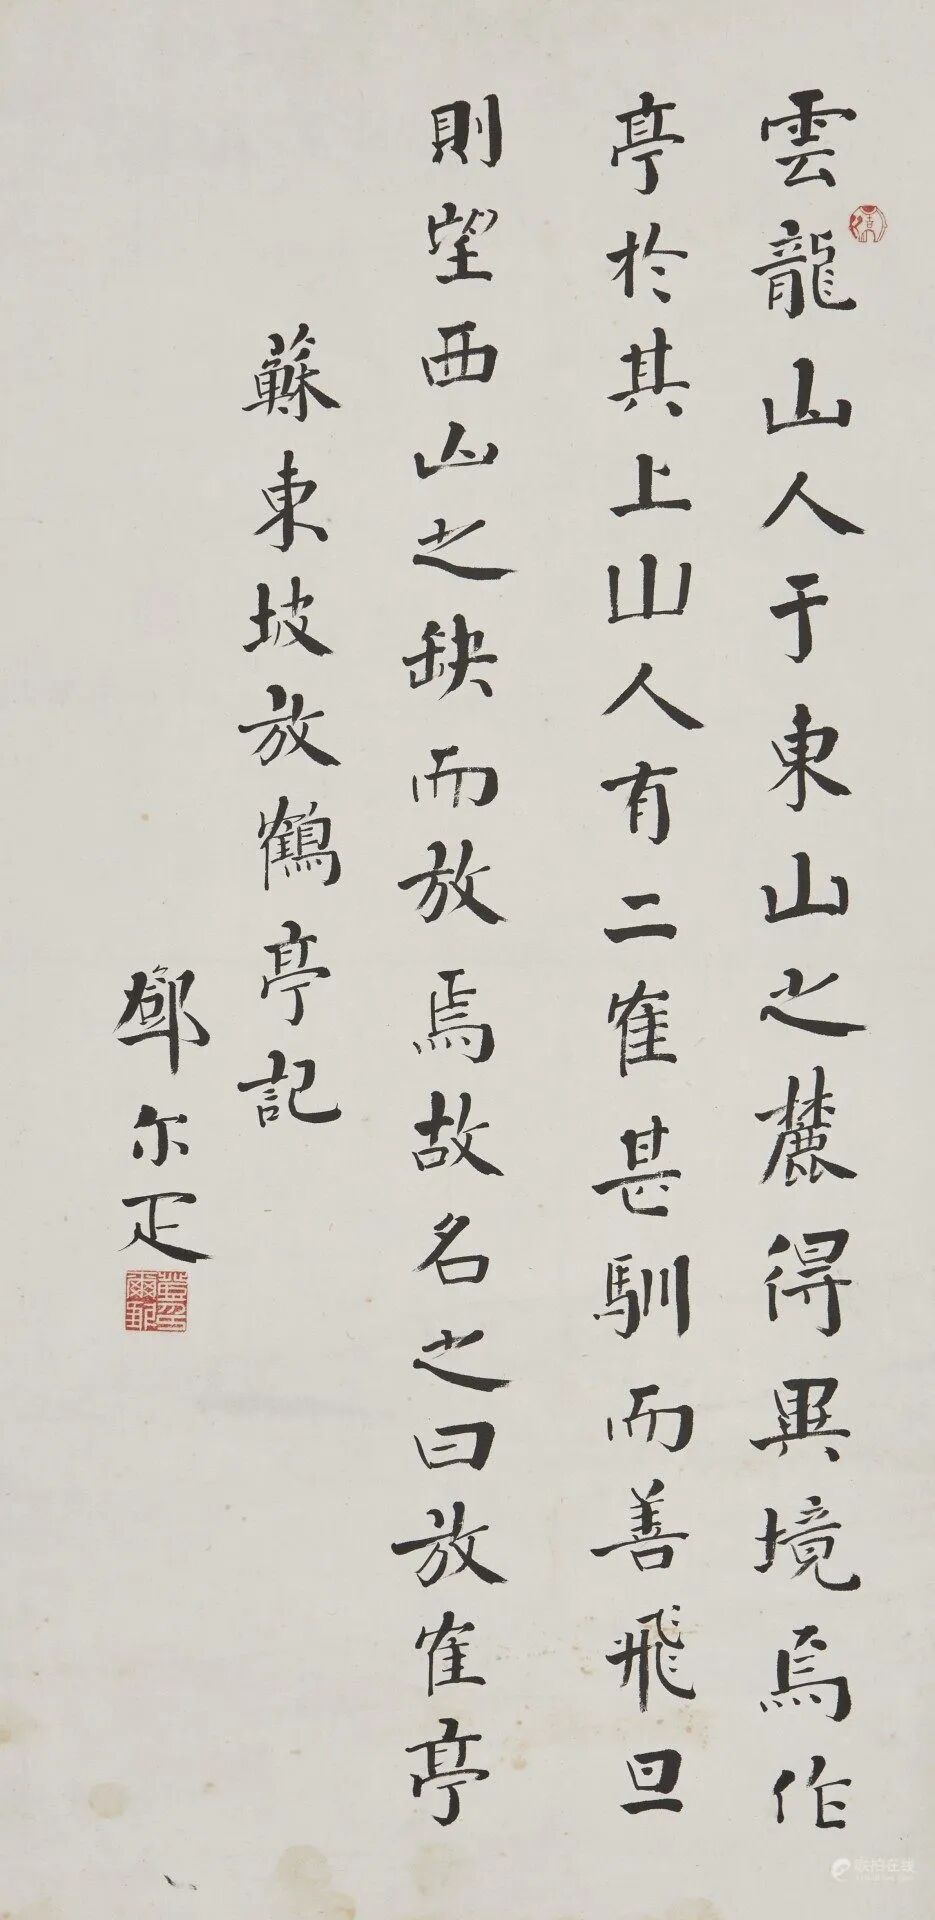 雲龍山人于東山之麓得異境焉作
亭於其上山人有二隺甚馴而善飛旦
則望西山之缺而放焉故名之曰放隺亭
蘇東坡放鶴亭記
鄧尔疋